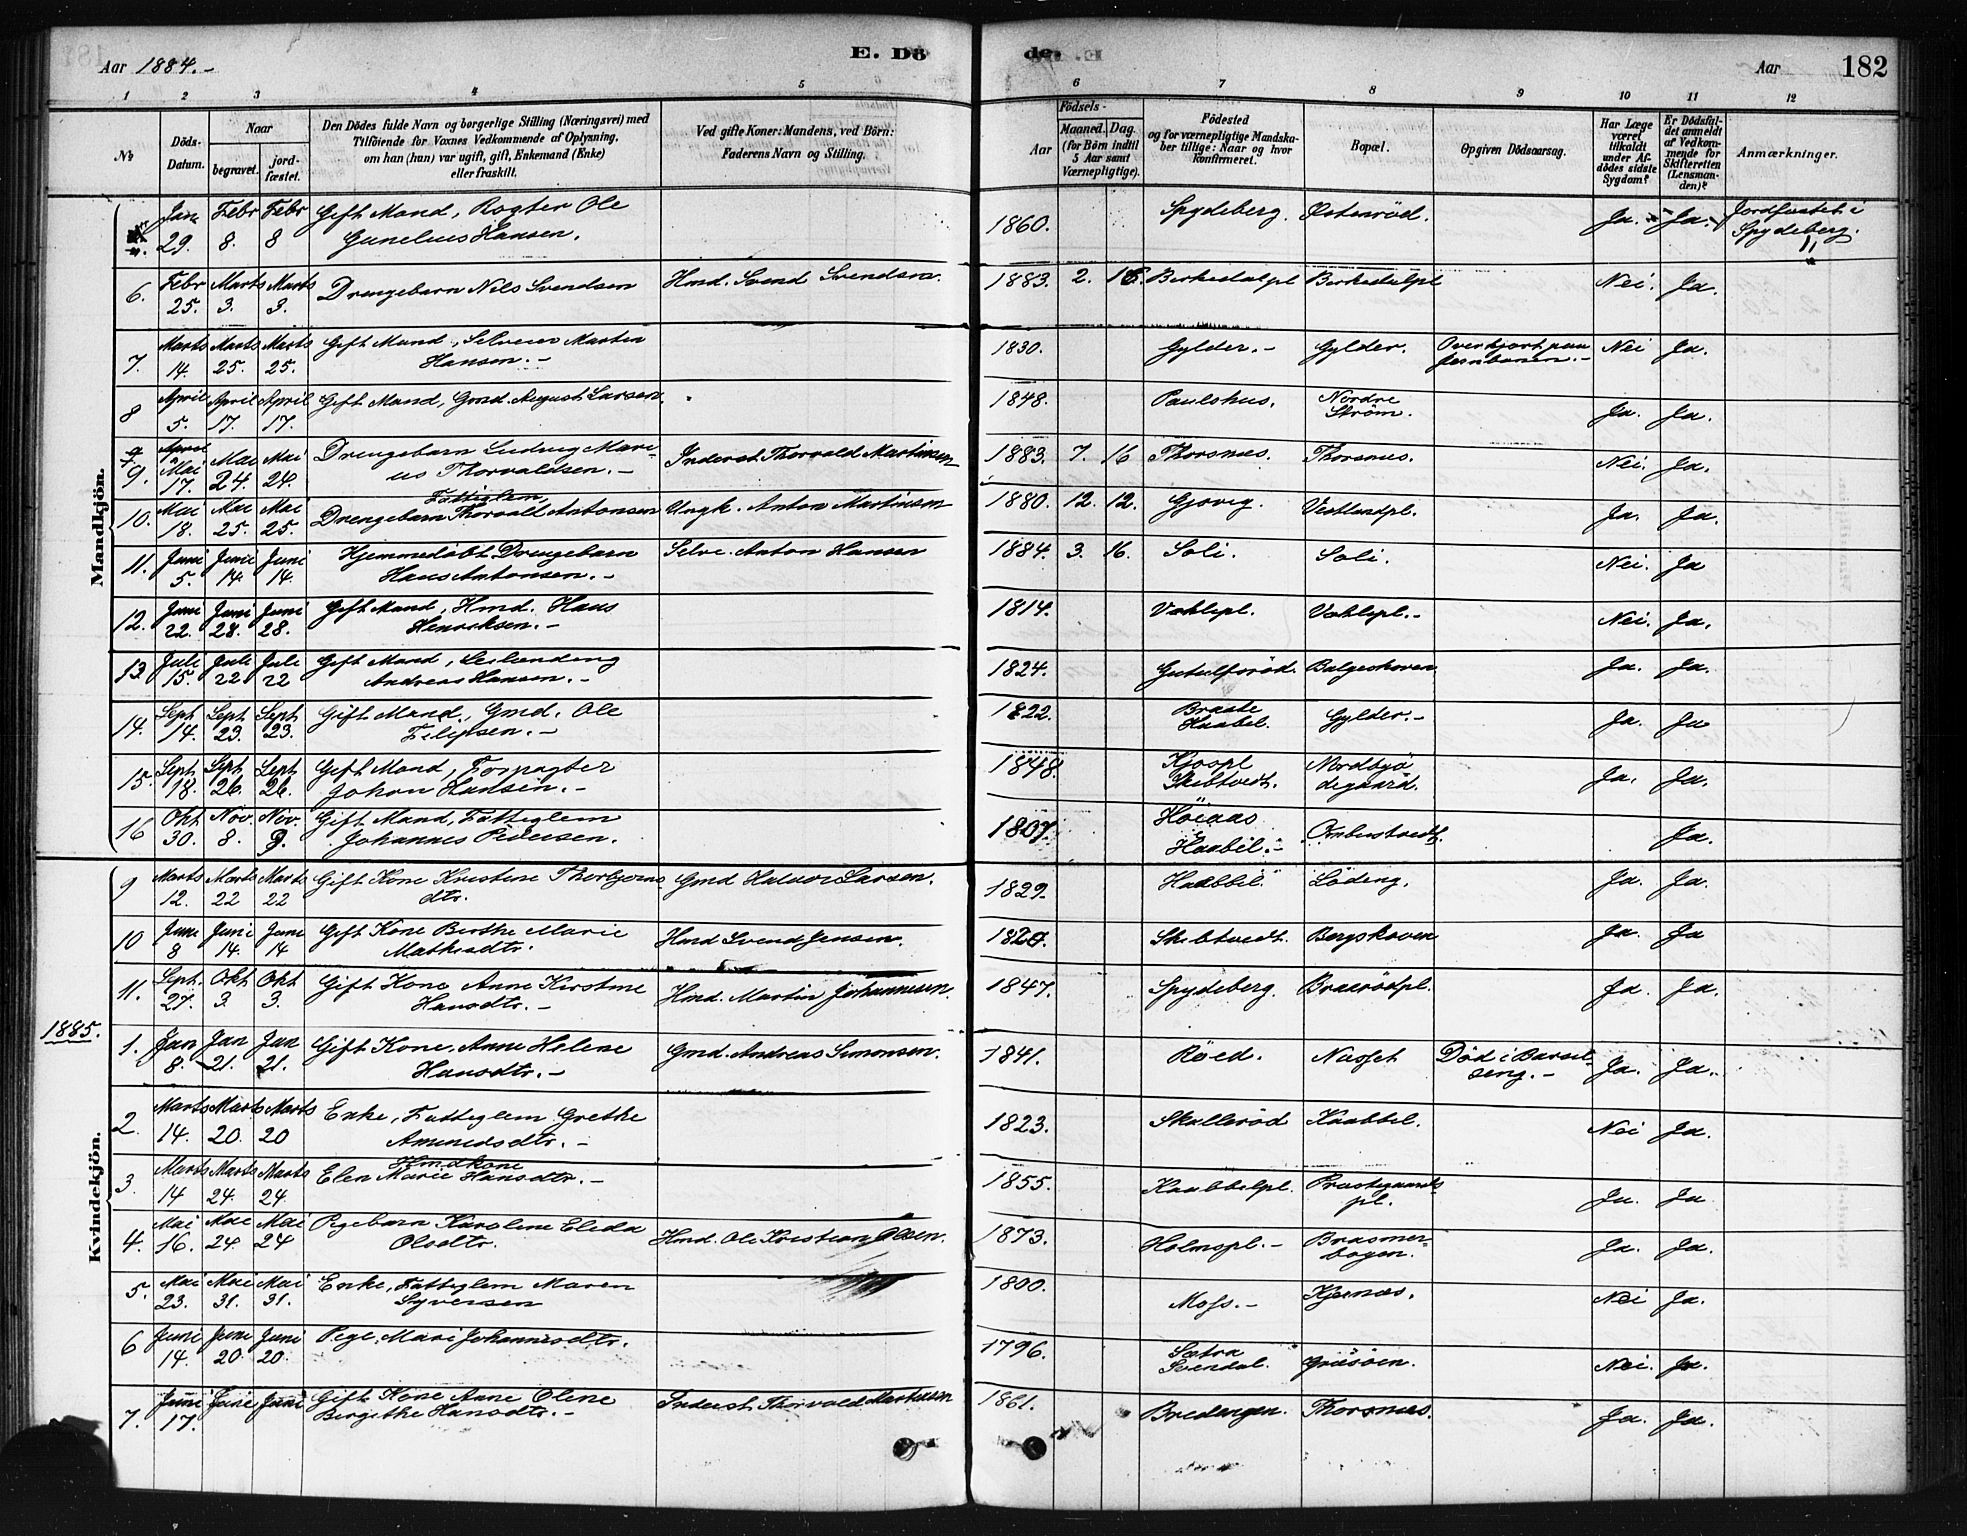 Aar 1884.-
E. Dö
de.
Aar
182
1 2 3 4 5 6 7 8 9 10 11 12
No
Döds-Datum.
Naar
begravet.
jord-fæstet.
Den Dödes fulde Navn og borgerlige Stilling (Næringsvei) med
Tilföiende for Voxnes Vedkommende af Oplysning,
om han (hun) var ugift, gift, Enkemand (Enke)
eller fraskilt.
Ved gifte Koner: Mandens, ved Börn:
Faderens Navn og Stilling.
Födsels-
Aar
Maaned. Dag.
(for Börn indtil
5 Aar samt
Værnepligtige).
Födested
og for værnepligtige Mandska-
ber tillige: Naar og hvor
konfirmeret.
Bopæl.
Opgiven Dödsaarsag.
Har Læge
været
tilkaldt
under Af-
dödes sidste
Sygdom?
Er Dödsfal-
det anmeldt
af Vedkom-
mende for
Skifteretten
(Lensman-
den)?
Anmærkninger.
Mandkjön.
Jan 29. Febr 8. Febr 8 Gift Mand, Røgter Ole
Gunelius Hansen. 1860. Spydeberg. Østenrød. Ja.- Ja.- Jordfæstet i
Spydeberg.
6. Febr 25. Marts 3. Marts 3. Drengebarn Nils Svendsen Hmd. Svend Svendsen. 1883. 2. 16. Birkedalpl Birkedalpl Nei. Ja.
7. Marts 14. Marts 25. Marts 25. Gift Mand, Selveier Martin
Hansen.- 1830. Gylder.- Gylder. Overkjørt paa
Jernbanen.- Nei Ja.
8 April 5. April 17. April 17. Gift Mand, Gmd. August Larsen. 1848. Paulshus. Nordre
Strøm. Ja. Ja.
9. Mai 17. Mai 24. Mai 24. Drengebarn Ludvig Mari-
us Thorvaldsen.- Inderst Thorvald Martinsen 1883. 7. 16 Thorsnæs. Thorsnæs. Nei. Ja.
10. Mai 18. Mai 25. Mai 25. Fattiglem
Drengebarn Thorvald Antonsen Ungk. Anton Martinsen 1880. 12. 12. Gjøvig. Vestlundpl. Ja. Ja.
11. Juni 5. Juni 14. Juni 14. Hjemmedøbt Drengebarn
Hans Antonsen.- Selve. Anton Hansen 1884. 3. 16. Soli. Soli. Nei. Ja
12. Juni 22. Juni 28. Juni 28. Gift Mand, Hmd. Hans
Henriksen.- 1814. Vahlepl. Vahlepl.- Nei. Ja.
13 Juli 15. Juli 22 Juli 22 Gift Mand, Leilænding
Andreas Hansen.- 1824. Gutulfsrød. Balgeskoven Ja. Ja.
14. Sept 14. Sept 23. Sept 23. Gift Mand, Gmd. Ole
Filipsen.- 1822. Braate
Haabøl. Gylder.- Ja. Ja
15. Sept 18. Sept 26. Sept 26. Gift Mand, Forpagter
Johan Hansen.- 1848. Kjospl
Skibtvedt. Nordbyø
degaard. Ja. Ja.
16 Okt 30. Nov. 8. Nov. 9. Gift Mand, Fattiglem
Johannes Pedersen. 1807. Høiaas
Haabøl.- Ombustvedt. Ja.
9 Marts 12. Marts 22 Marts 22 Gift Kone Kristine Thorbjørns
dtr. Gmd Halvor Larsen. 1829. Haabbøl Løding. Ja. Ja.
10 Juni 8 Juni 14. Juni 14 Gift Kone Berthe Marie
Mathisdtr. Hmd Svend Jensen. 1820. Skibtvedt. Bergskoven Ja. Ja
11. Sept. 27. Okt 3. Okt 3. Gift Kone Anne Kirstine
Hansdtr.- Hmd. Martin Johannesen. 1847. Spydeberg. Braarødpl. Ja. Ja.
1885.
Kvindekjön.
1. Jan 8. Jan 21. Jan 21. Gift Kone Anne Helene
Hansdtr.- Gmd. Andreas Simonsen. 1841. Røed. Næsset Død i Barsel-
seng.- Ja. Ja.
2. Marts 14. Marts 20. Marts 20 Enke, Fattiglem Grethe
Amundsdtr.- 1823. Skallerød Kaabbel. Nei Ja.
3. Marts 14 Marts 24. Marts 24. Hmdkone
Elen Marie Hansdtr.- 1855. Kaabbelpl. Præstegaards-
pl. Ja. Ja
4. Mai 16. Mai 24. Mai 24 Pigebarn Karoline Elida
Olsdtr. Hmd. Ole Kristian Olsen. 1873. Holmspl.- Brasmer-
bogen. Ja. Ja.
5. Mai 23. Mai 31. Mai 31. Enke, Fattiglem Maren
Syversen 1800. Moss.- Kjernæs. Nei Ja.
6 Juni 14. Juni 20. Juni 20. Pige. Mari Johannesdtr. 1796. Sætra
Svendal. Græsøen. Nei. Ja.
7. Juni 17. Juni Juni Gift Kone Anne Oline
Birgithe Hansdtr.- Inderst Thorvald Martinsen 1861. Bredengen. Thorsnæs. Ja. Ja.